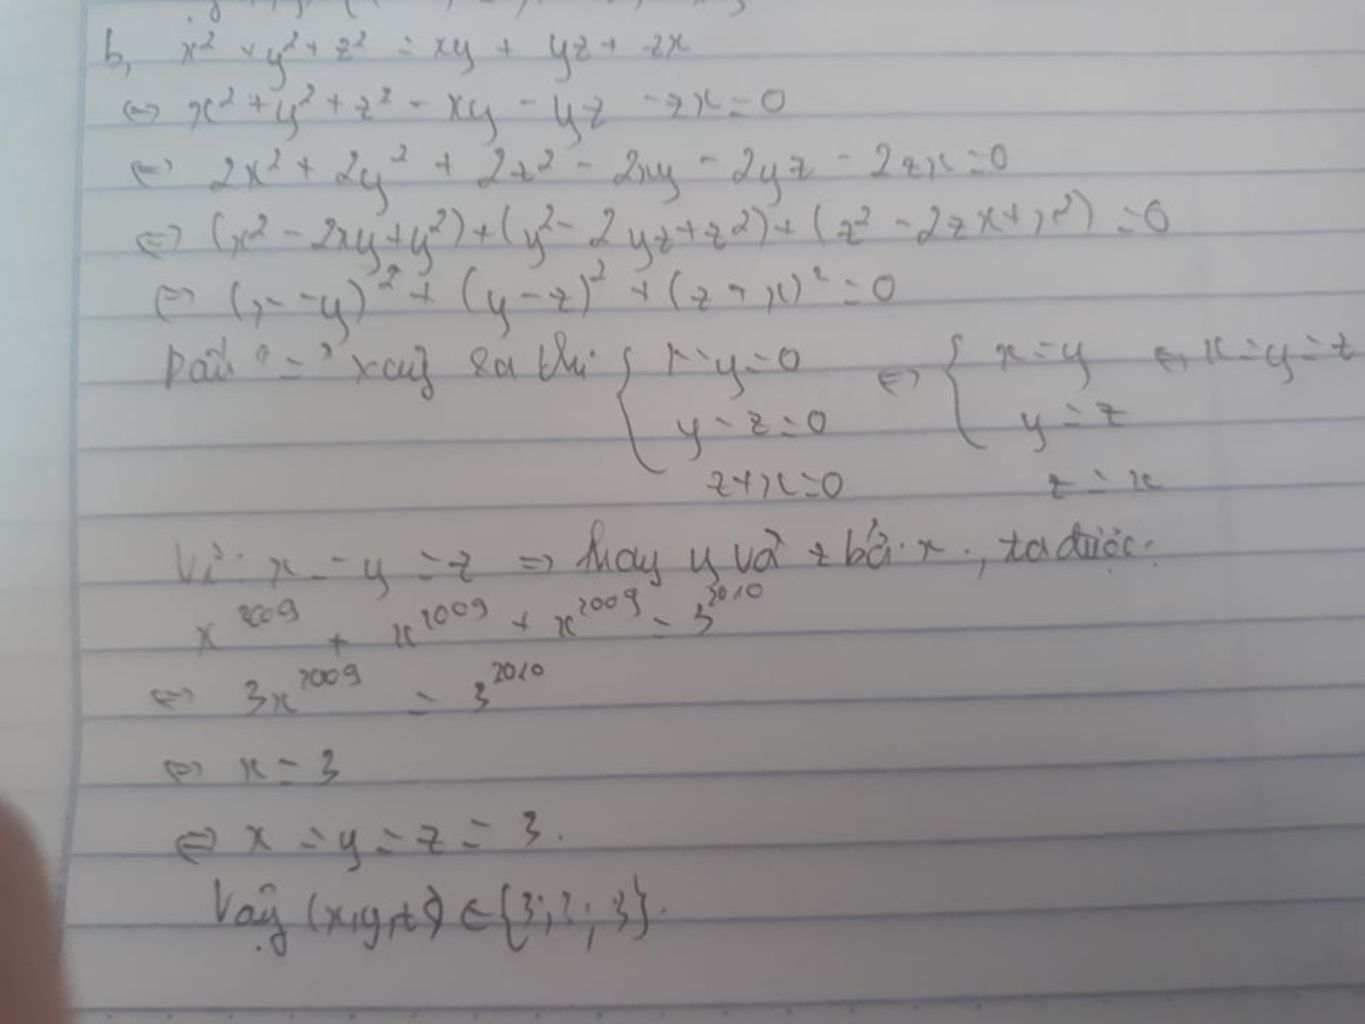 b, x² + y² + z² = xy + yz + zx
⇔ x² + y² + z² - xy - yz - zx = 0
⇔ 2x² + 2y² + 2z² - 2xy - 2yz - 2zx = 0
⇔ (x² - 2xy + y²) + (y² - 2yz + z²) + (z² - 2zx + x²) = 0
⇔ (x - y)² + (y - z)² + (z + x)² = 0
Dấu "=" xảy ra thì { x - y = 0 ⇔ { x = y ⇔ x = y = z
y - z = 0 y = z
z + x = 0 z = x
Vì x = y = z ⇒ thay y và z bởi x, ta được:
x²⁰⁰⁹ + x²⁰⁰⁹ + x²⁰⁰⁹ = 3²⁰¹⁰
⇔ 3x²⁰⁰⁹ = 3²⁰¹⁰
⇔ x = 3
⇔ x = y = z = 3.
Vậy (x,y,z) ∈ {3; 3; 3}.